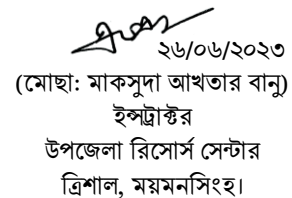 ২৬/০৬/২০২৩
(মোছা: মাকসুদা আখতার বানু)
ইন্সট্রাক্টর
উপজেলা রিসোর্স সেন্টার
ত্রিশাল, ময়মনসিংহ।